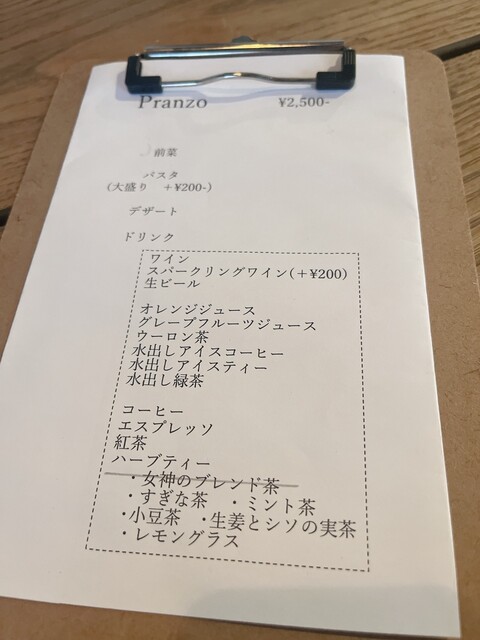 Pranzo ¥2,500-
前菜
パスタ
(大盛り ＋¥200-)
デザート
ドリンク
ワイン
スパークリングワイン(＋¥200)
生ビール
オレンジジュース
グレープフルーツジュース
ウーロン茶
水出しアイスコーヒー
水出しアイスティー
水出し緑茶
コーヒー
エスプレッソ
紅茶
ハーブティー
・女神のブレンド茶
・すぎな茶 ・ミント茶
・小豆茶 ・生姜とシソの実茶
・レモングラス